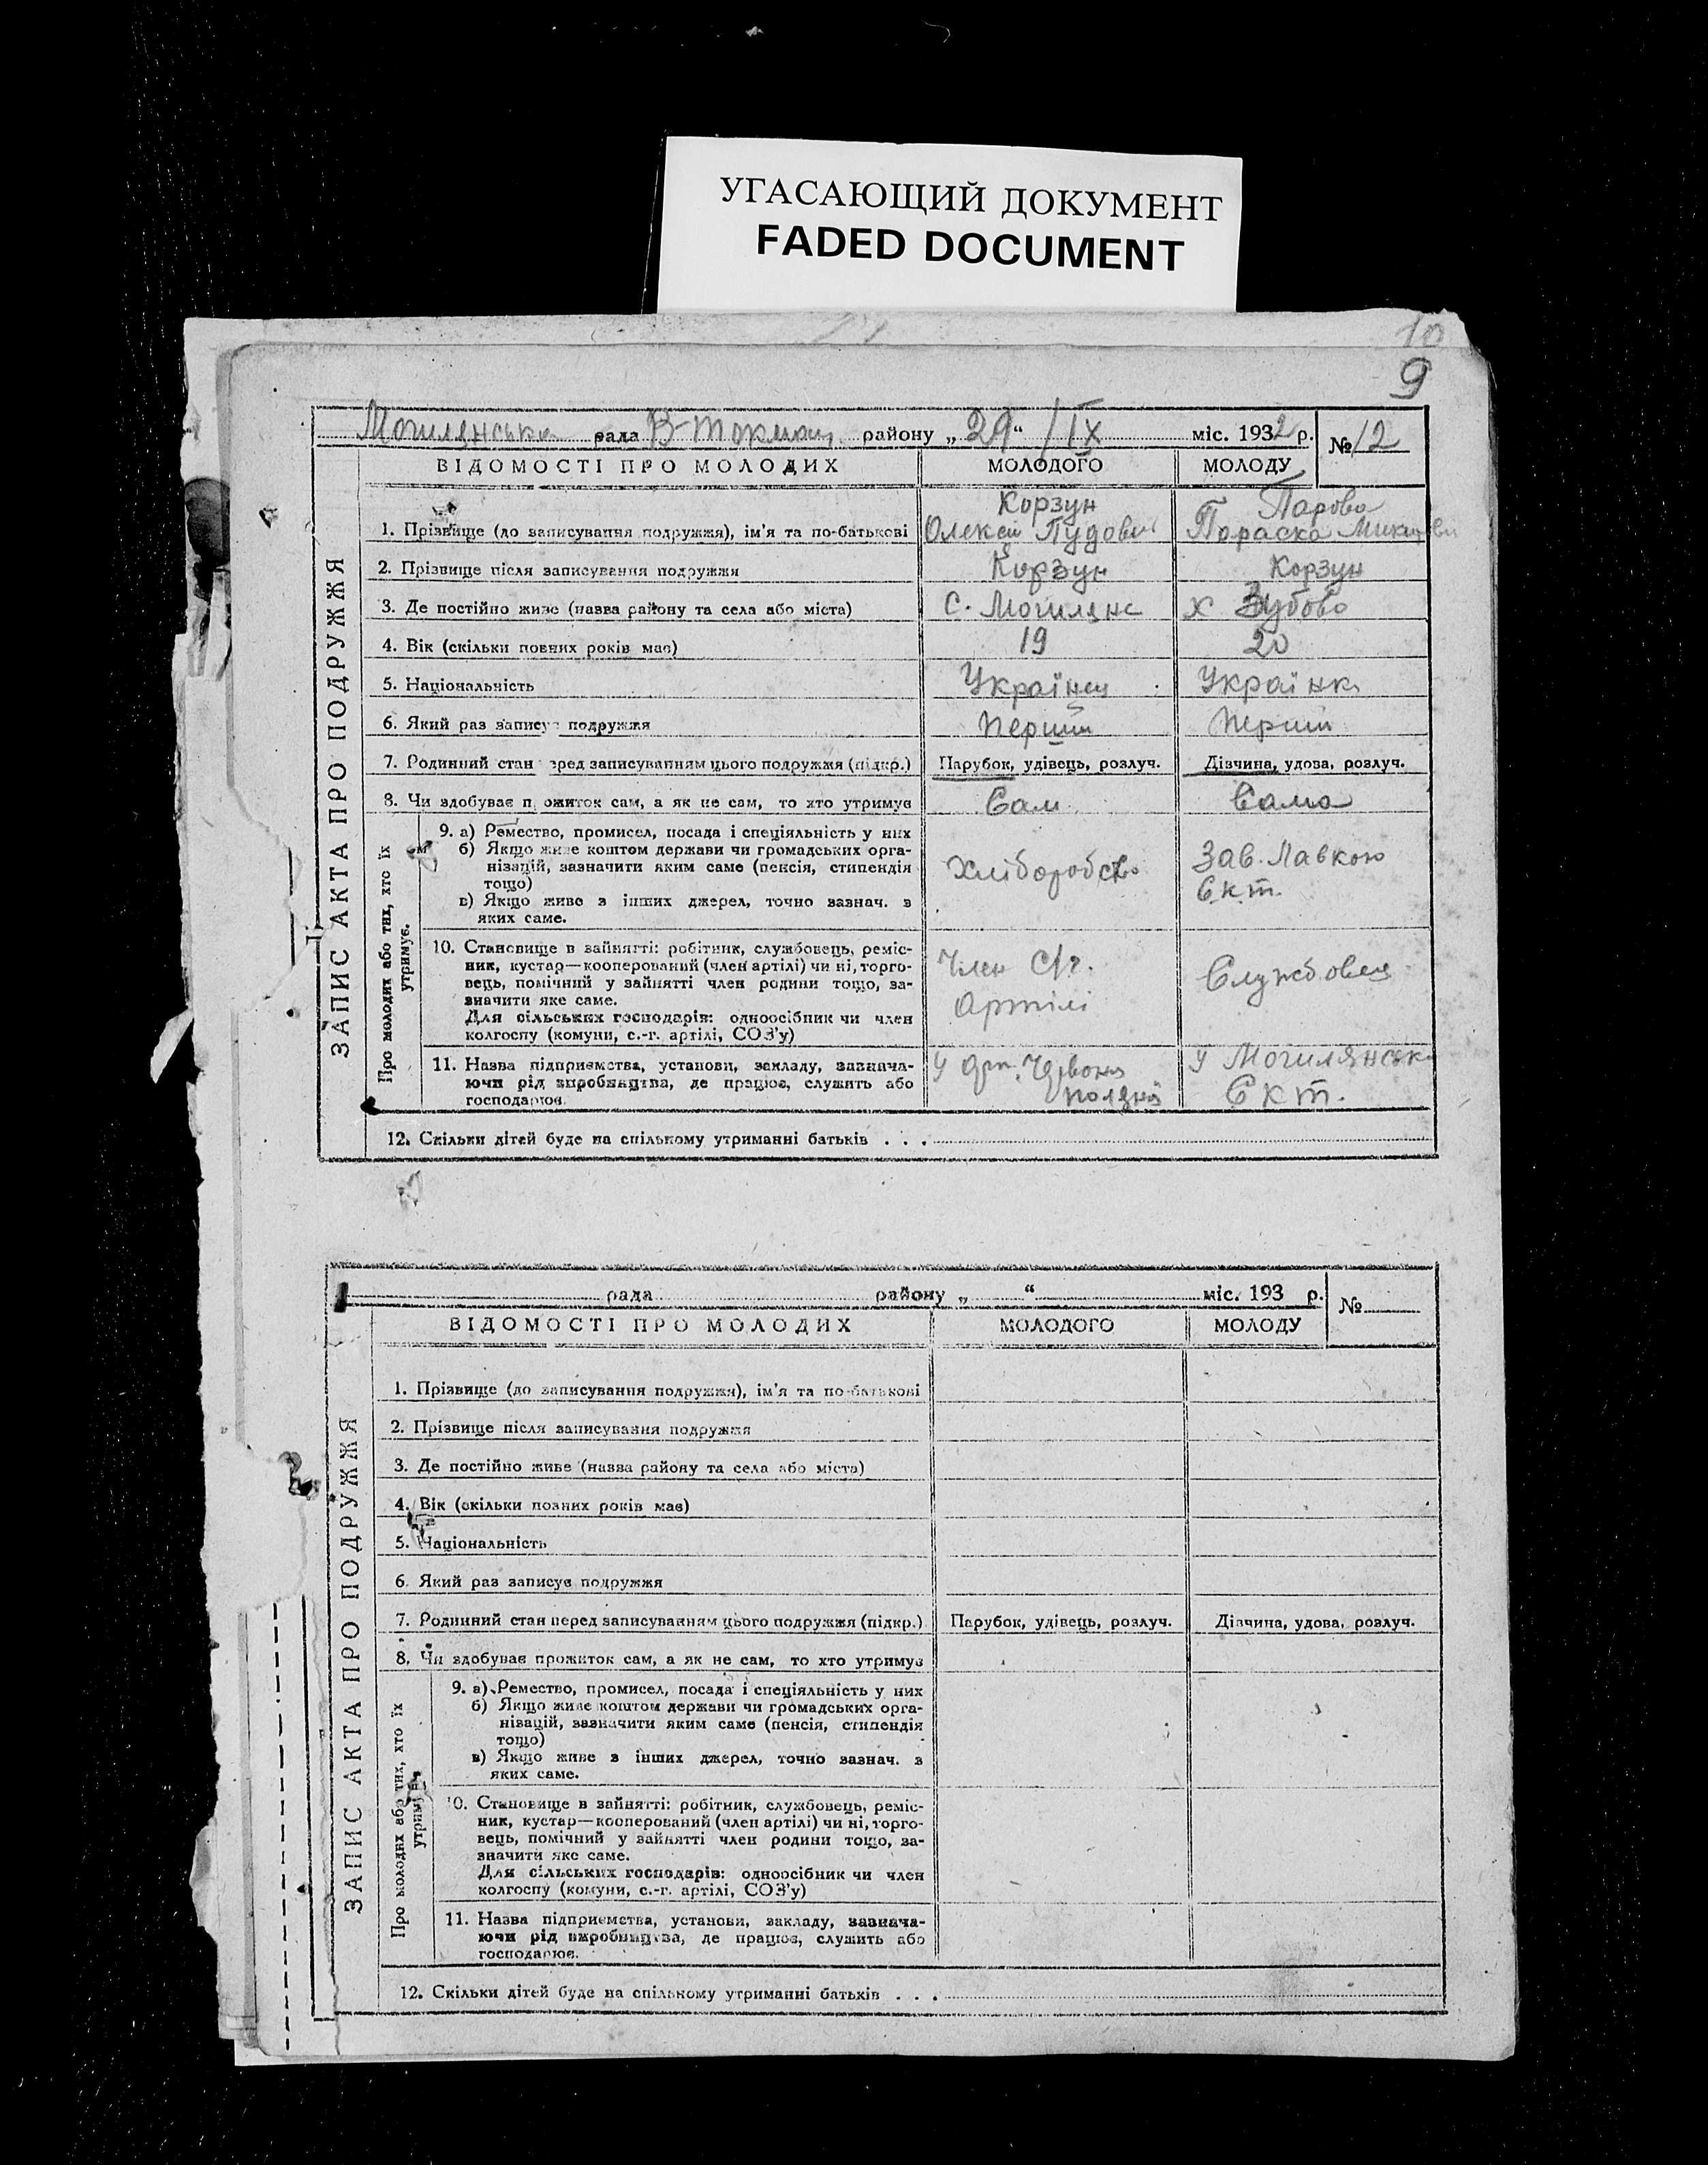 УГАСАЮЩИЙ ДОКУМЕНТ
FADED DOCUMENT
10
9
Могилянська рада В-Токмац. району „29“ /IX міс. 1932 р. № 12
ЗАПИС АКТА ПРО ПОДРУЖЖЯ
ВІДОМОСТІ ПРО МОЛОДИХ МОЛОДОГО МОЛОДУ
1. Прізвище (до записування подружжя), ім'я та по-батькові Корзун Парова
Олексій Пудович Параска
2. Прізвище після записування подружжя Корзун Корзун
3. Де постійно живе (назва району та села або міста) с. Могиляне х Зубово
4. Вік (скільки повних років має) 19 20
5. Національність Українец Українка
6. Який раз записує подружжя перший перший
7. Родинний стан перед записуванням цього подружжя (підкр.) Парубок, удівець, розлуч. Дівчина, удова, розлуч.
8. Чи здобуває прожиток сам, а як не сам, то хто утримує Сам Сама
Про молодих або тих, хто їх утримує.
9. а) Ремество, промисел, посада і спеціяльність у них
б) Якщо живе коштом держави чи громадських орга-
нізацій, зазначити яким саме (пенсія, стипендія
тощо)
в) Якщо живе з інших джерел, точно зазнач. з
яких саме.
Хліборобство
Зав. Лавкою
Скт.
10. Становище в зайнятті: робітник, службовець, реміс-
ник, кустар—кооперований (член артілі) чи ні, торго-
вець, помічний у зайнятті член родини тощо, за-
значити яке саме.
Для сільських господарів: одноосібник чи член
колгоспу (комуни, с.-г. артілі, СОЗ'у)
Член С/г.
Артілі
Службовец
11. Назва підприємства, установи, закладу, зазнача-
ючи рід виробництва, де працює, служить або
господарює.
У арт. Червона
поляна
У Могилянськ
Скт.
12. Скільки дітей буде на спільному утриманні батьків . . .
рада району „ “ міс. 193 р. №
ЗАПИС АКТА ПРО ПОДРУЖЖЯ
ВІДОМОСТІ ПРО МОЛОДИХ МОЛОДОГО МОЛОДУ
1. Прізвище (до записування подружжя), ім'я та по-батькові
2. Прізвище після записування подружжя
3. Де постійно живе (назва району та села або міста)
4. Вік (скільки повних років має)
5. Національність
6. Який раз записує подружжя
7. Родинний стан перед записуванням цього подружжя (підкр.) Парубок, удівець, розлуч. Дівчина, удова, розлуч.
8. Чи здобуває прожиток сам, а як не сам, то хто утримує
Про молодих або тих, хто їх утримує
9. а) Ремество, промисел, посада і спеціяльність у них
б) Якщо живе коштом держави чи громадських орга-
нізацій, зазначити яким саме (пенсія, стипендія
тощо)
в) Якщо живе з інших джерел, точно зазнач. з
яких саме.
10. Становище в зайнятті: робітник, службовець, реміс-
ник, кустар—кооперований (член артілі) чи ні, торго-
вець, помічний у зайнятті член родини тощо, за-
значити яке саме.
Для сільських господарів: одноосібник чи член
колгоспу (комуни, с.-г. артілі, СОЗ'у)
11. Назва підприємства, установи, закладу, зазнача-
ючи рід виробництва, де працює, служить або
господарює.
12. Скільки дітей буде на спільному утриманні батьків . . .